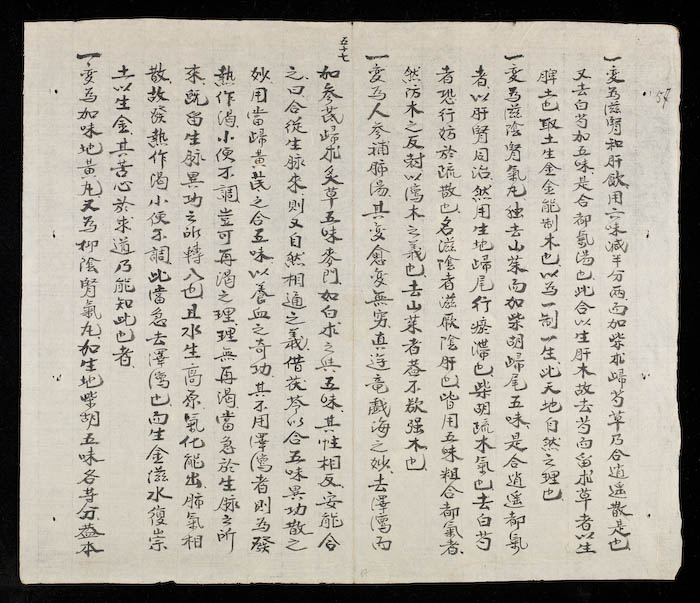 57
一変為滋腎和肝飲用六味減半分両而加柴朮歸芍草乃合逍遥散是也
又去白芍加五味是合都氣湯也此合以生肝木故去芍而留朮草者以生
脾土也取土生金金能制木也以為一制一生此天地自然之理也
一変為滋陰腎氣丸独去山茱而加柴胡歸尾五味是合逍遥都氣
者以肝腎同治然用生地歸尾行瘀滞也柴胡疏木氣也去白芍
者恐行妨於疏散也名滋陰者滋厥陰肝也皆用五味粗合都氣者
然防木之反尅以瀉木之義也去山茱者蓋不欲强木也
一変為人參補肺湯其変愈変無窮真遊竜戯海之妙去澤瀉而
五十七
加參芪歸朮炙草五味麥門如白朮之與五味其性相反安能合
之曰合從生脉來則又自然相通之義借茯苓以合五味異功散之
妙用當歸黄芪之合五味以養血之奇功其不用澤瀉者則為發
熱作渇小便不調豈可再渇之理理無再渇當急於生脉之所
來既留生脉異功之所轉入也且水生高原氣化能出肺氣相
散故發熱作渇小便不調此當急去澤瀉也而生金滋水復崇
土以生金其苦心於求道乃能知此也者
一変為加味地黄丸又為抑陰腎氣丸加生地柴胡五味各等分益本